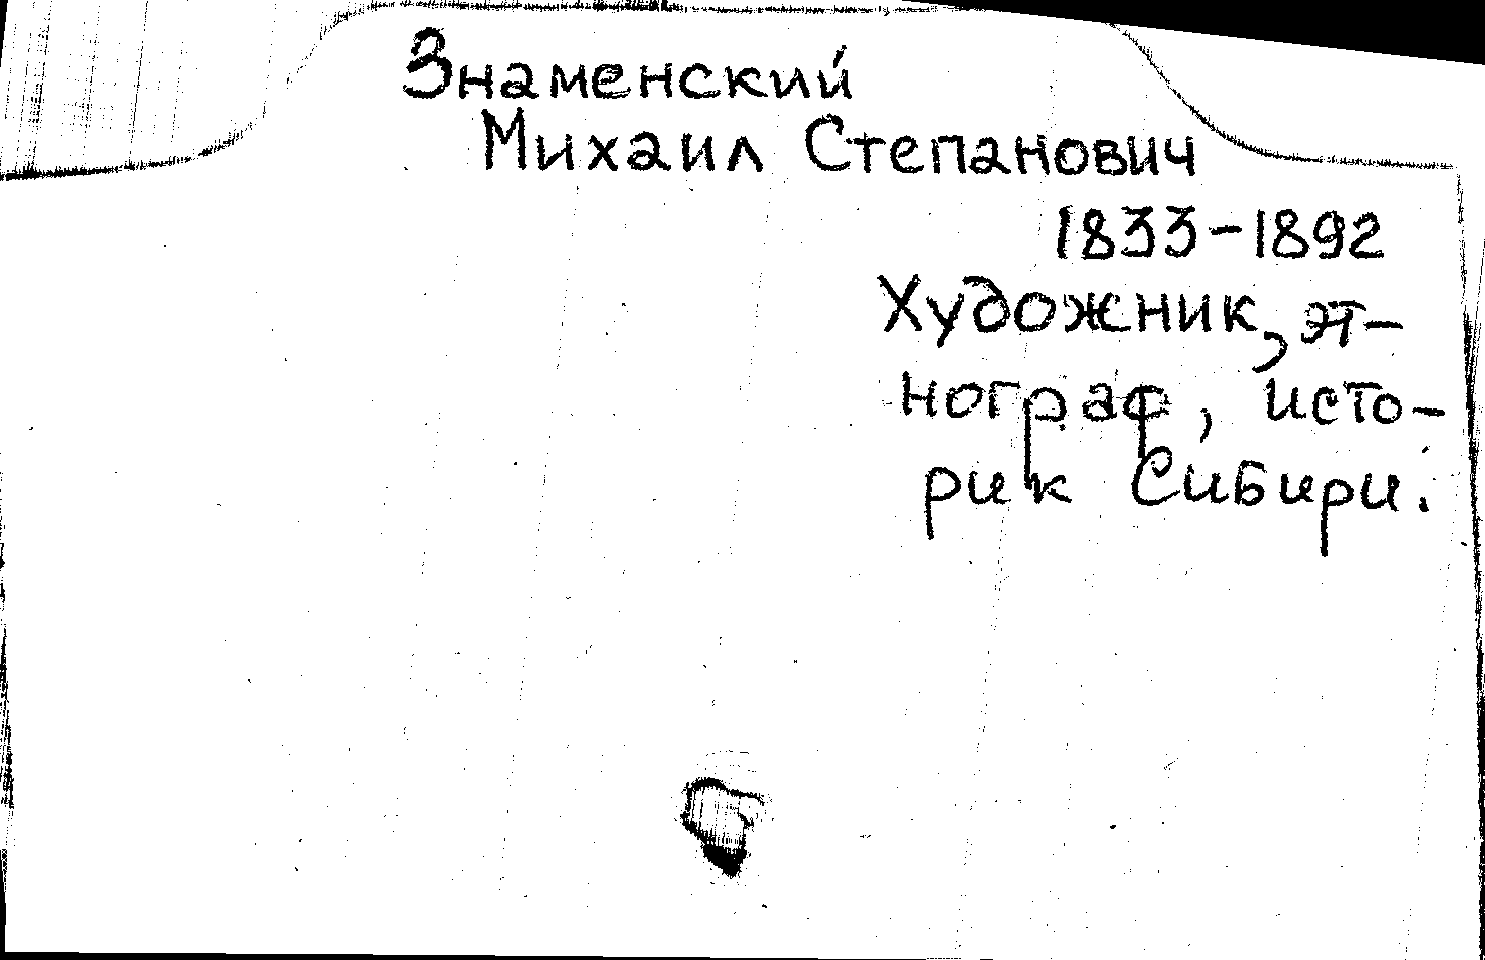 Знаменский
Михаил Степанович
1833-1892
Художник, эт-
нограф, исто-
рик Сибири.